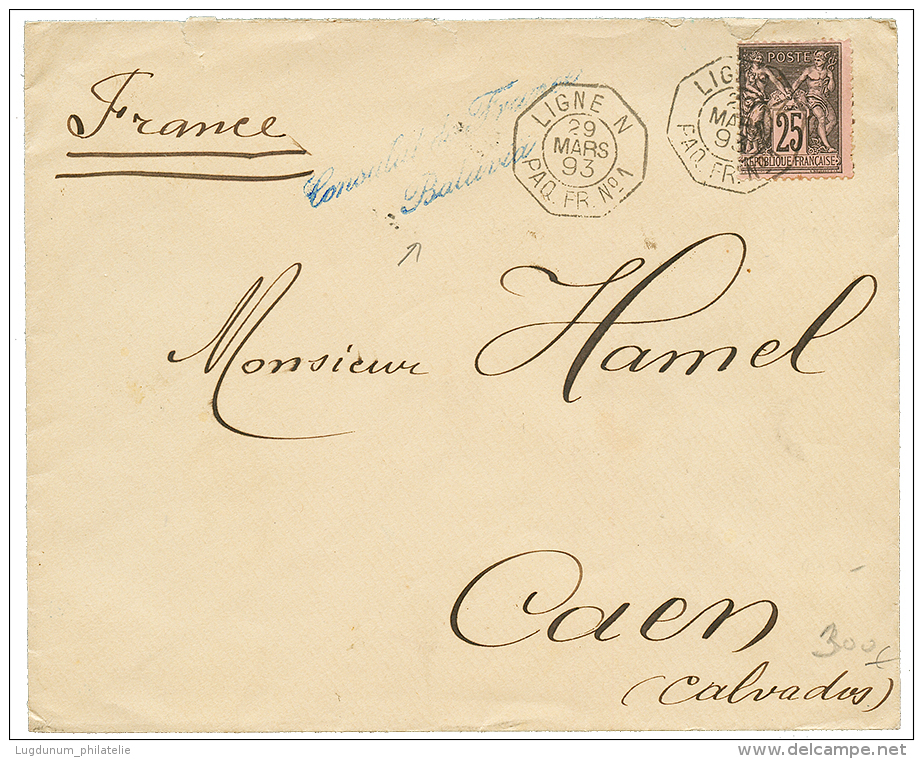 France
Consulat de France
Batavia
LIGNE N
29
MARS
93
PAQ. FR. Nº1
LIGNE
29
MARS
93
PAQ. FR. N
POSTE
25
REPUBLIQUE FRANCAISE
Monsieur Hamel
Caen
300€
(Calvados)
Lugdunum_philatelie
www.delcampe.net